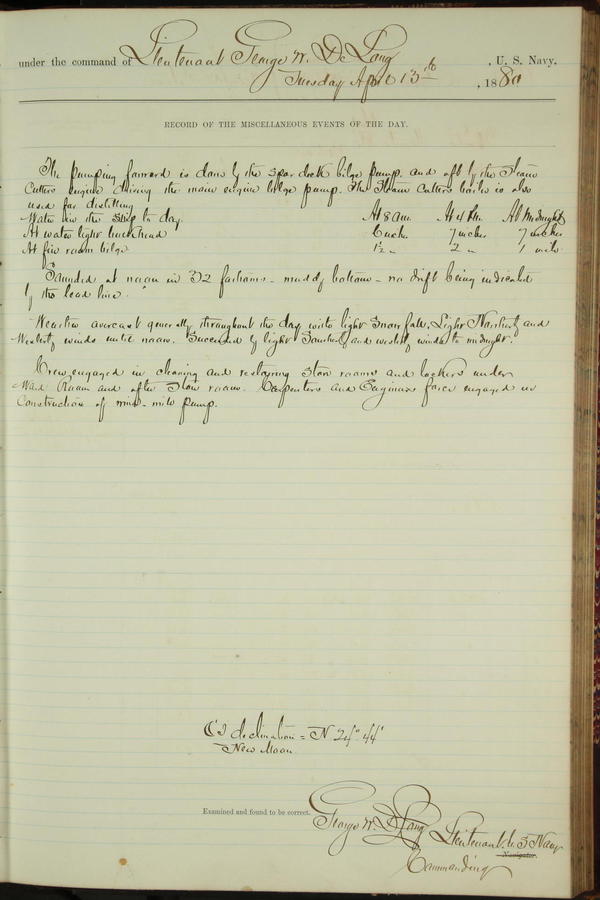 under the command of Lieutenant George W. De Long, U. S. Navy,
Tuesday April 13th, 1880
RECORD OF THE MISCELLANEOUS EVENTS OF THE DAY.
The pumping forward is done by the spar deck bilge pump, and aft by the Steam
Cutters engine driving the main engine bilge pump. The Steam Cutters boiler is also
used for distilling
Water in the ship to day. At 8 a.m. At 4 P.m. At Midnight
At water tight bulkhead 6 inches 7 inches 7 inches
At fire room bilge 1½ " 2 " 1 inch
Sounded at noon in 32 fathoms - muddy bottom - no drift being indicated
by the lead line.
Weather overcast generally throughout the day with light snow fall. Light Northerly and
Westerly winds until noon. Succeeded by light Southerly and westerly winds to midnight.
Crew engaged in cleaning and restowing store rooms and lockers under
Ward Room and after store room. Carpenters and Engineers force engaged in
Construction of wind-mill pump.
☾'s declination = N 24° 44'
New Moon
Examined and found to be correct.
George W. De Long Lieutenant U. S. Navy
Navigator.
Commanding